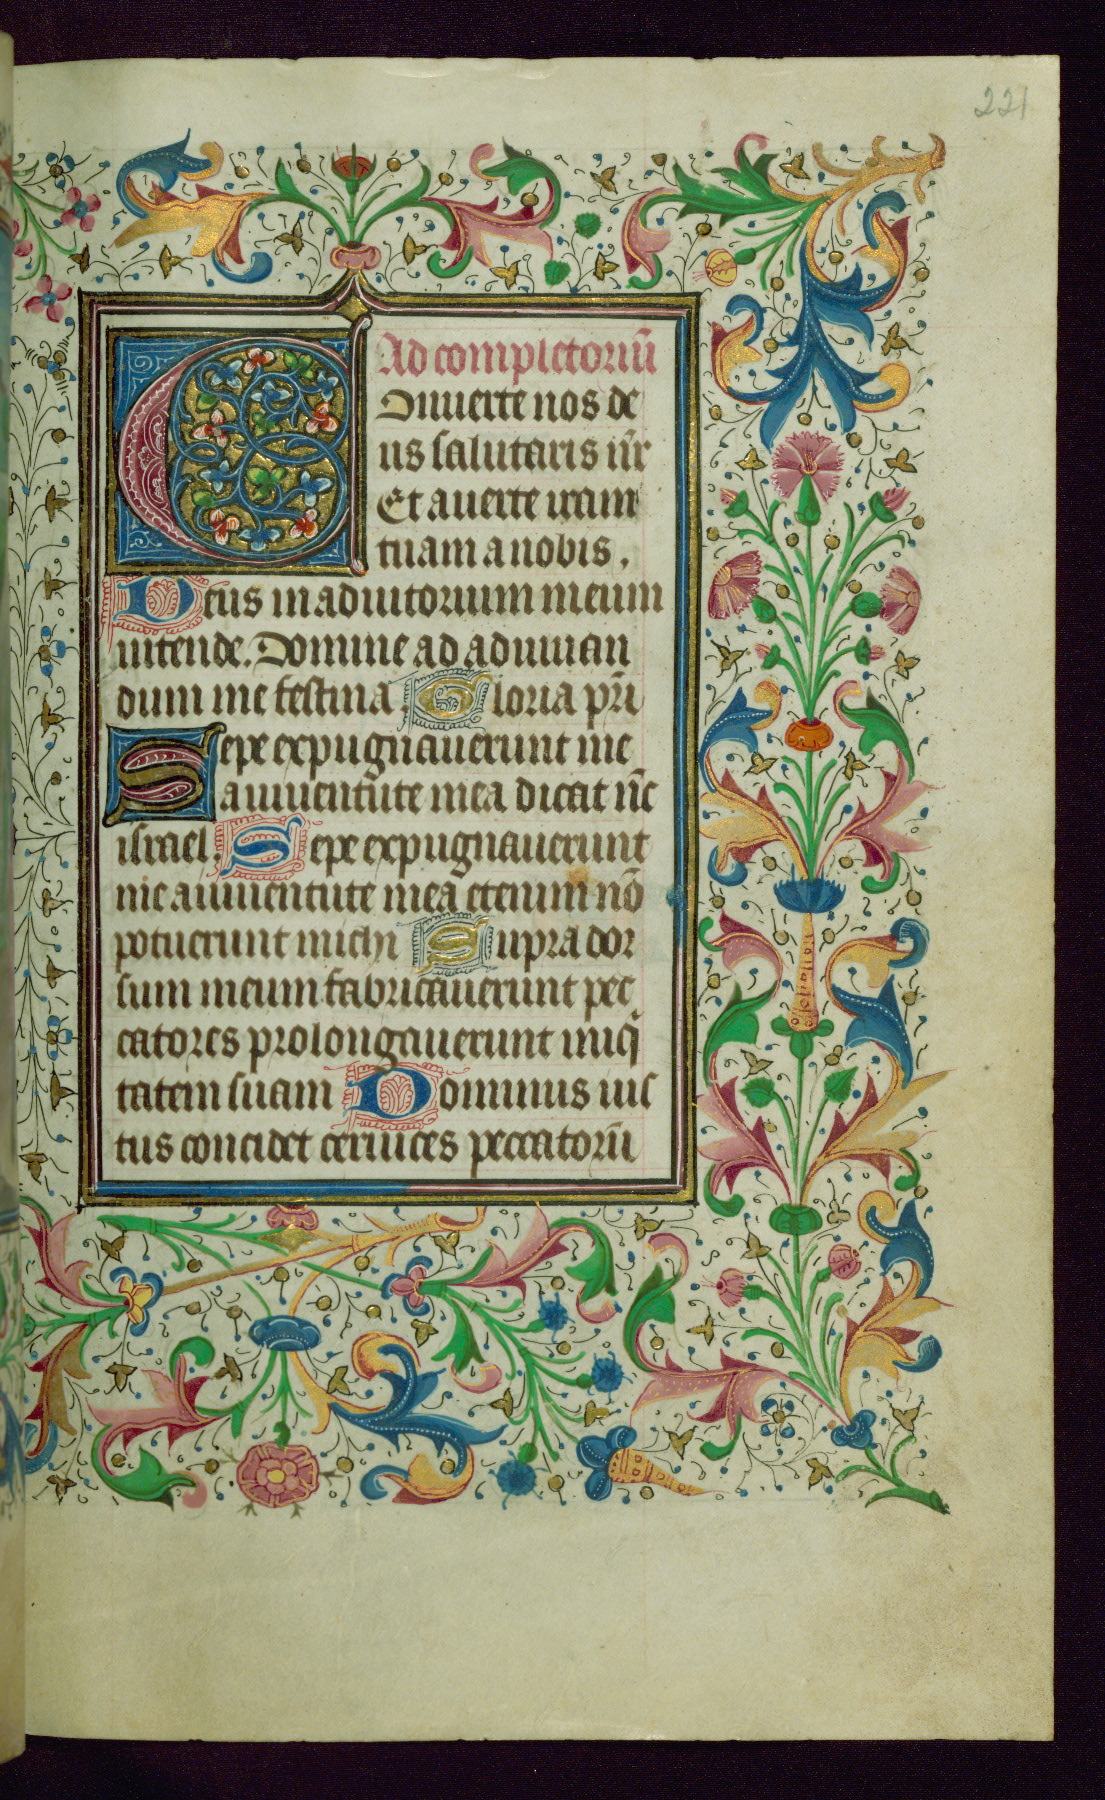 221
Ad completoriū
Conuerte nos de
us salutaris nr̄
Et auerte iram
tuam a nobis.
Deus in adiutorium meum
intende. Domine ad adiuuan
dum me festina. Gloria pr̄i
Sepe expugnauerunt me
a iuuentute mea dicat nc̄
israel. Sepe expugnauerunt
me a iuuentute mea etenim nō
potuerunt michi Supra dor
sum meum fabricauerunt pec
catores prolongauerunt iniq̄
tatem suam Dominus ius
tus concidet ceruices peccatorū